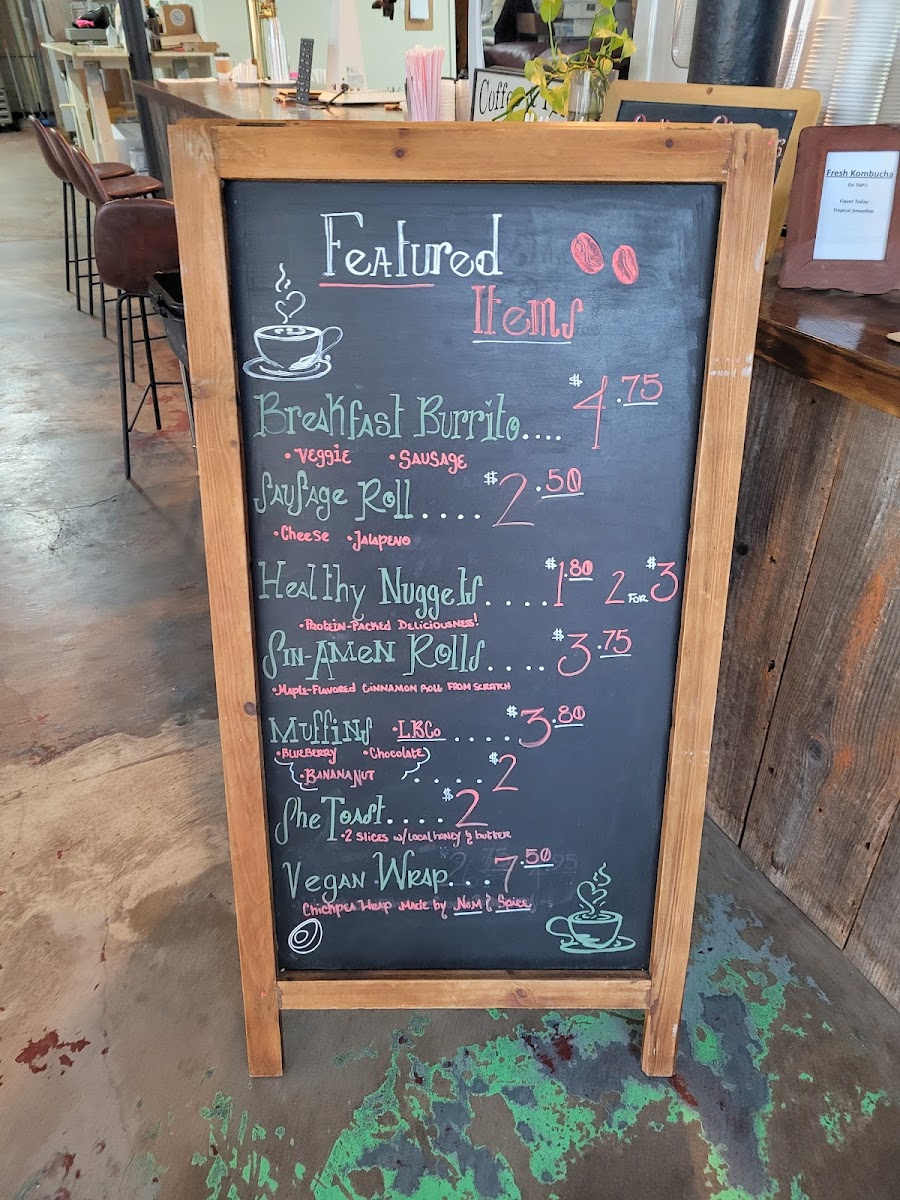 Coffee
Fresh Kombucha
On TAP!!
Flavor Today:
Tropical Smoothie
Featured
Items
Breakfast Burrito.... $4.75
• Veggie • Sausage
Sausage Roll .... $2.50
• Cheese • Jalapeno
Healthy Nuggets.... $1.80 2 for $3
• Protein-Packed Deliciousness!
Sin-Amen Rolls.... $3.75
• Maple-Flavored Cinnamon Roll from scratch
Muffins • LBCo .... $3.80
• Blueberry • Chocolate
• Banana Nut ..... $2
She Toast.... $2
• 2 slices w/ local honey & butter
Vegan Wrap... 7.50
Chickpea Wrap Made by Nom & Spice